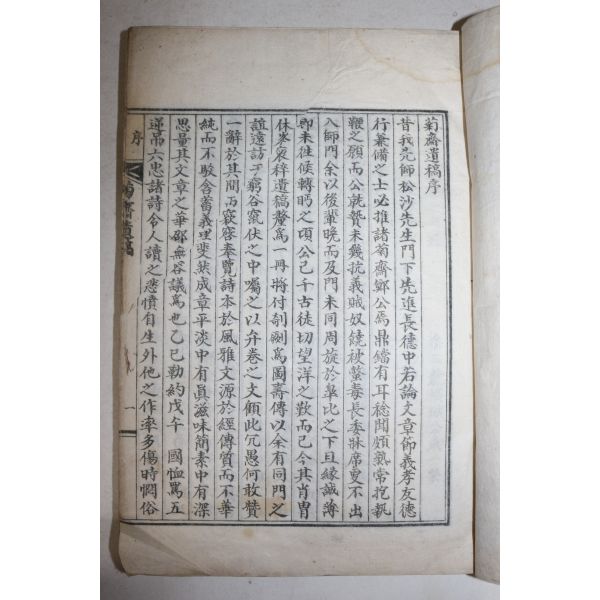 菊齋遺稿序
昔我先師松沙先生門下先進長德中若論文章仰義孝友德
行兼備之士必推諸菊齋鄭公焉鼎鐺有耳稔聞頗熟常抱執
鞭之願而公就贄未幾抗義賊奴饒被螫毒長委牀席更不出
入師門余以後輩晚而及門未同周旋於皐比之下且緣誠薄
即未往候轉眄之頃公已千古徒切望洋之歎而已今其肖胄
休峯裒稡遺稿釐爲一冊將付剞劂爲圖壽傳以余有同門之
誼遠訪于窮谷竄伏之中囑之以弁卷之文顧此冗愚何敢贊
一辭於其間而竊窃奉覽詩本於風雅文源於經傳質而不華
純而不駁含蓄義理斐然成章平淡中有眞滋味簡素中有深
思量其文章之華卲無容議爲也乙巳勒約戊午 國恤罵五
逆吊六忠諸詩令人讀之悲憤自生外他之作率多傷時憫俗
序
菊齋遺稿
一